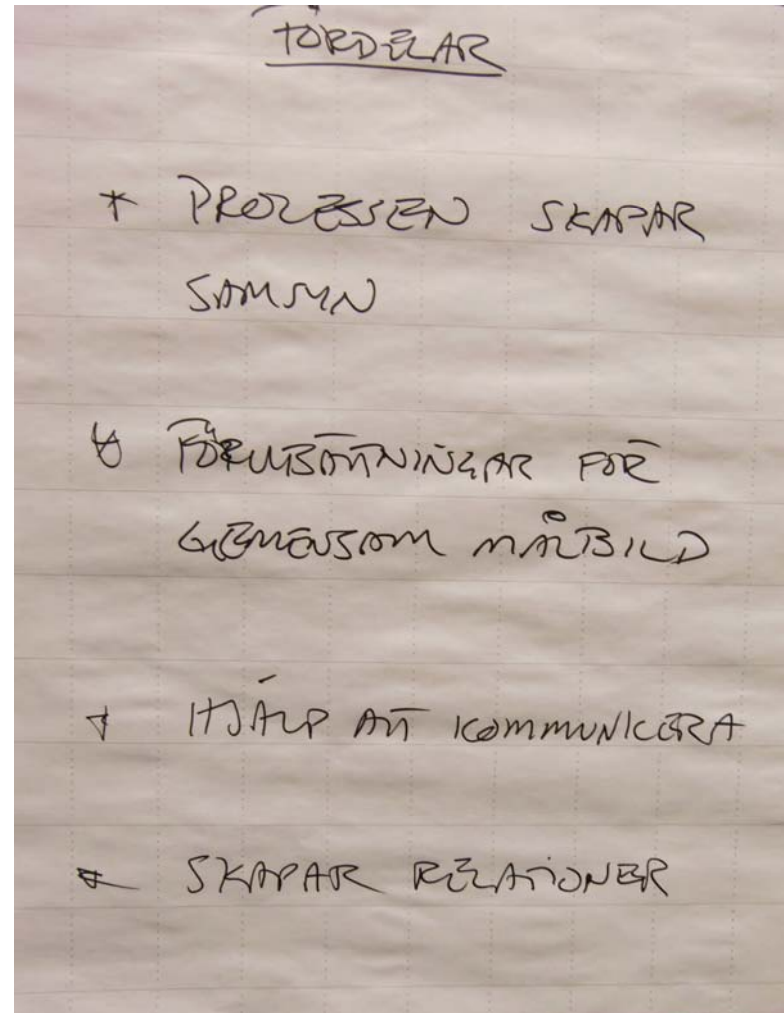 FÖRDELAR
* PROCESSEN SKAPAR
SAMSYN
* FÖRUTSÄTTNINGAR FÖR
GEMENSAM MÅLBILD
* HJÄLP ATT KOMMUNICERA
* SKAPAR RELATIONER